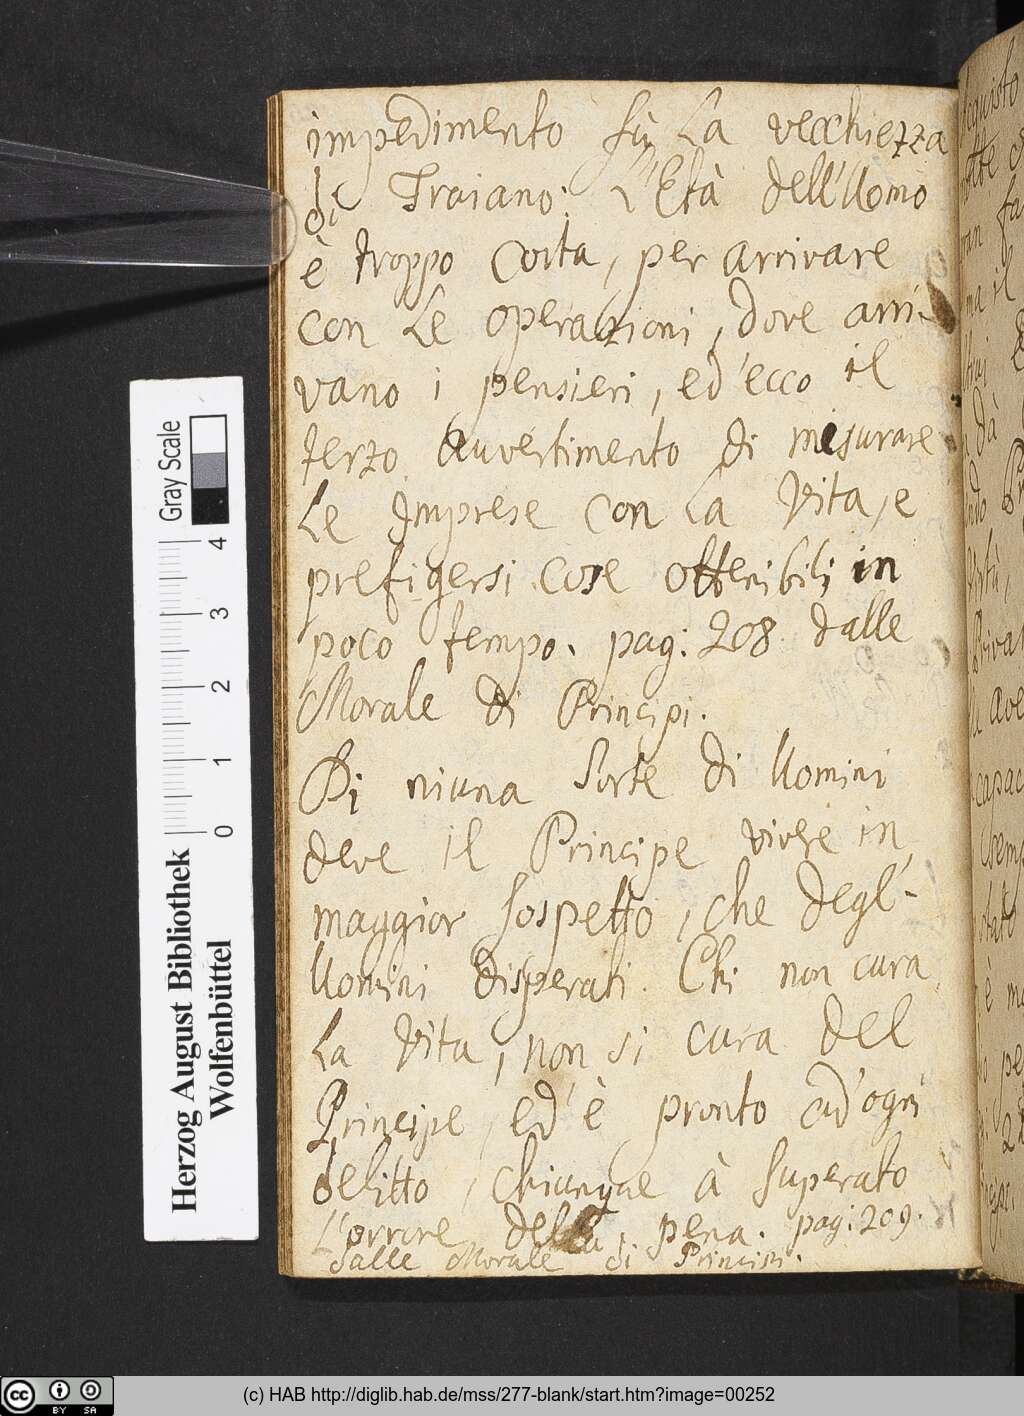 impedimento fù La vecchiezza
di Traiano; L'Età dell'Uomo
è troppo corta, per arrivare
con Le operazioni, dove arri-
vano i pensieri, ed'ecco il
terzo auvertimento di misurare
Le Imprese con La Vita, e
prefigersi cose ottenibili in
poco tempo. pag: 208 dalle
Morale di Principi.
Di niuna Sorte di Uomini
deve il Principe vivere in
maggior Sospetto, che degl'-
Uomini disperati. Chi non cura
La Vita, non si cura del
Principe, ed'è pronto ad'ogni
delitto, chiunque à Superato
L'orrore della pena. pag: 209.
dalle Morale di Principi.
Gray Scale
4
3
2
1
0
Herzog August Bibliothek
Wolfenbüttel
cc BY SA
(c) HAB http://diglib.hab.de/mss/277-blank/start.htm?image=00252